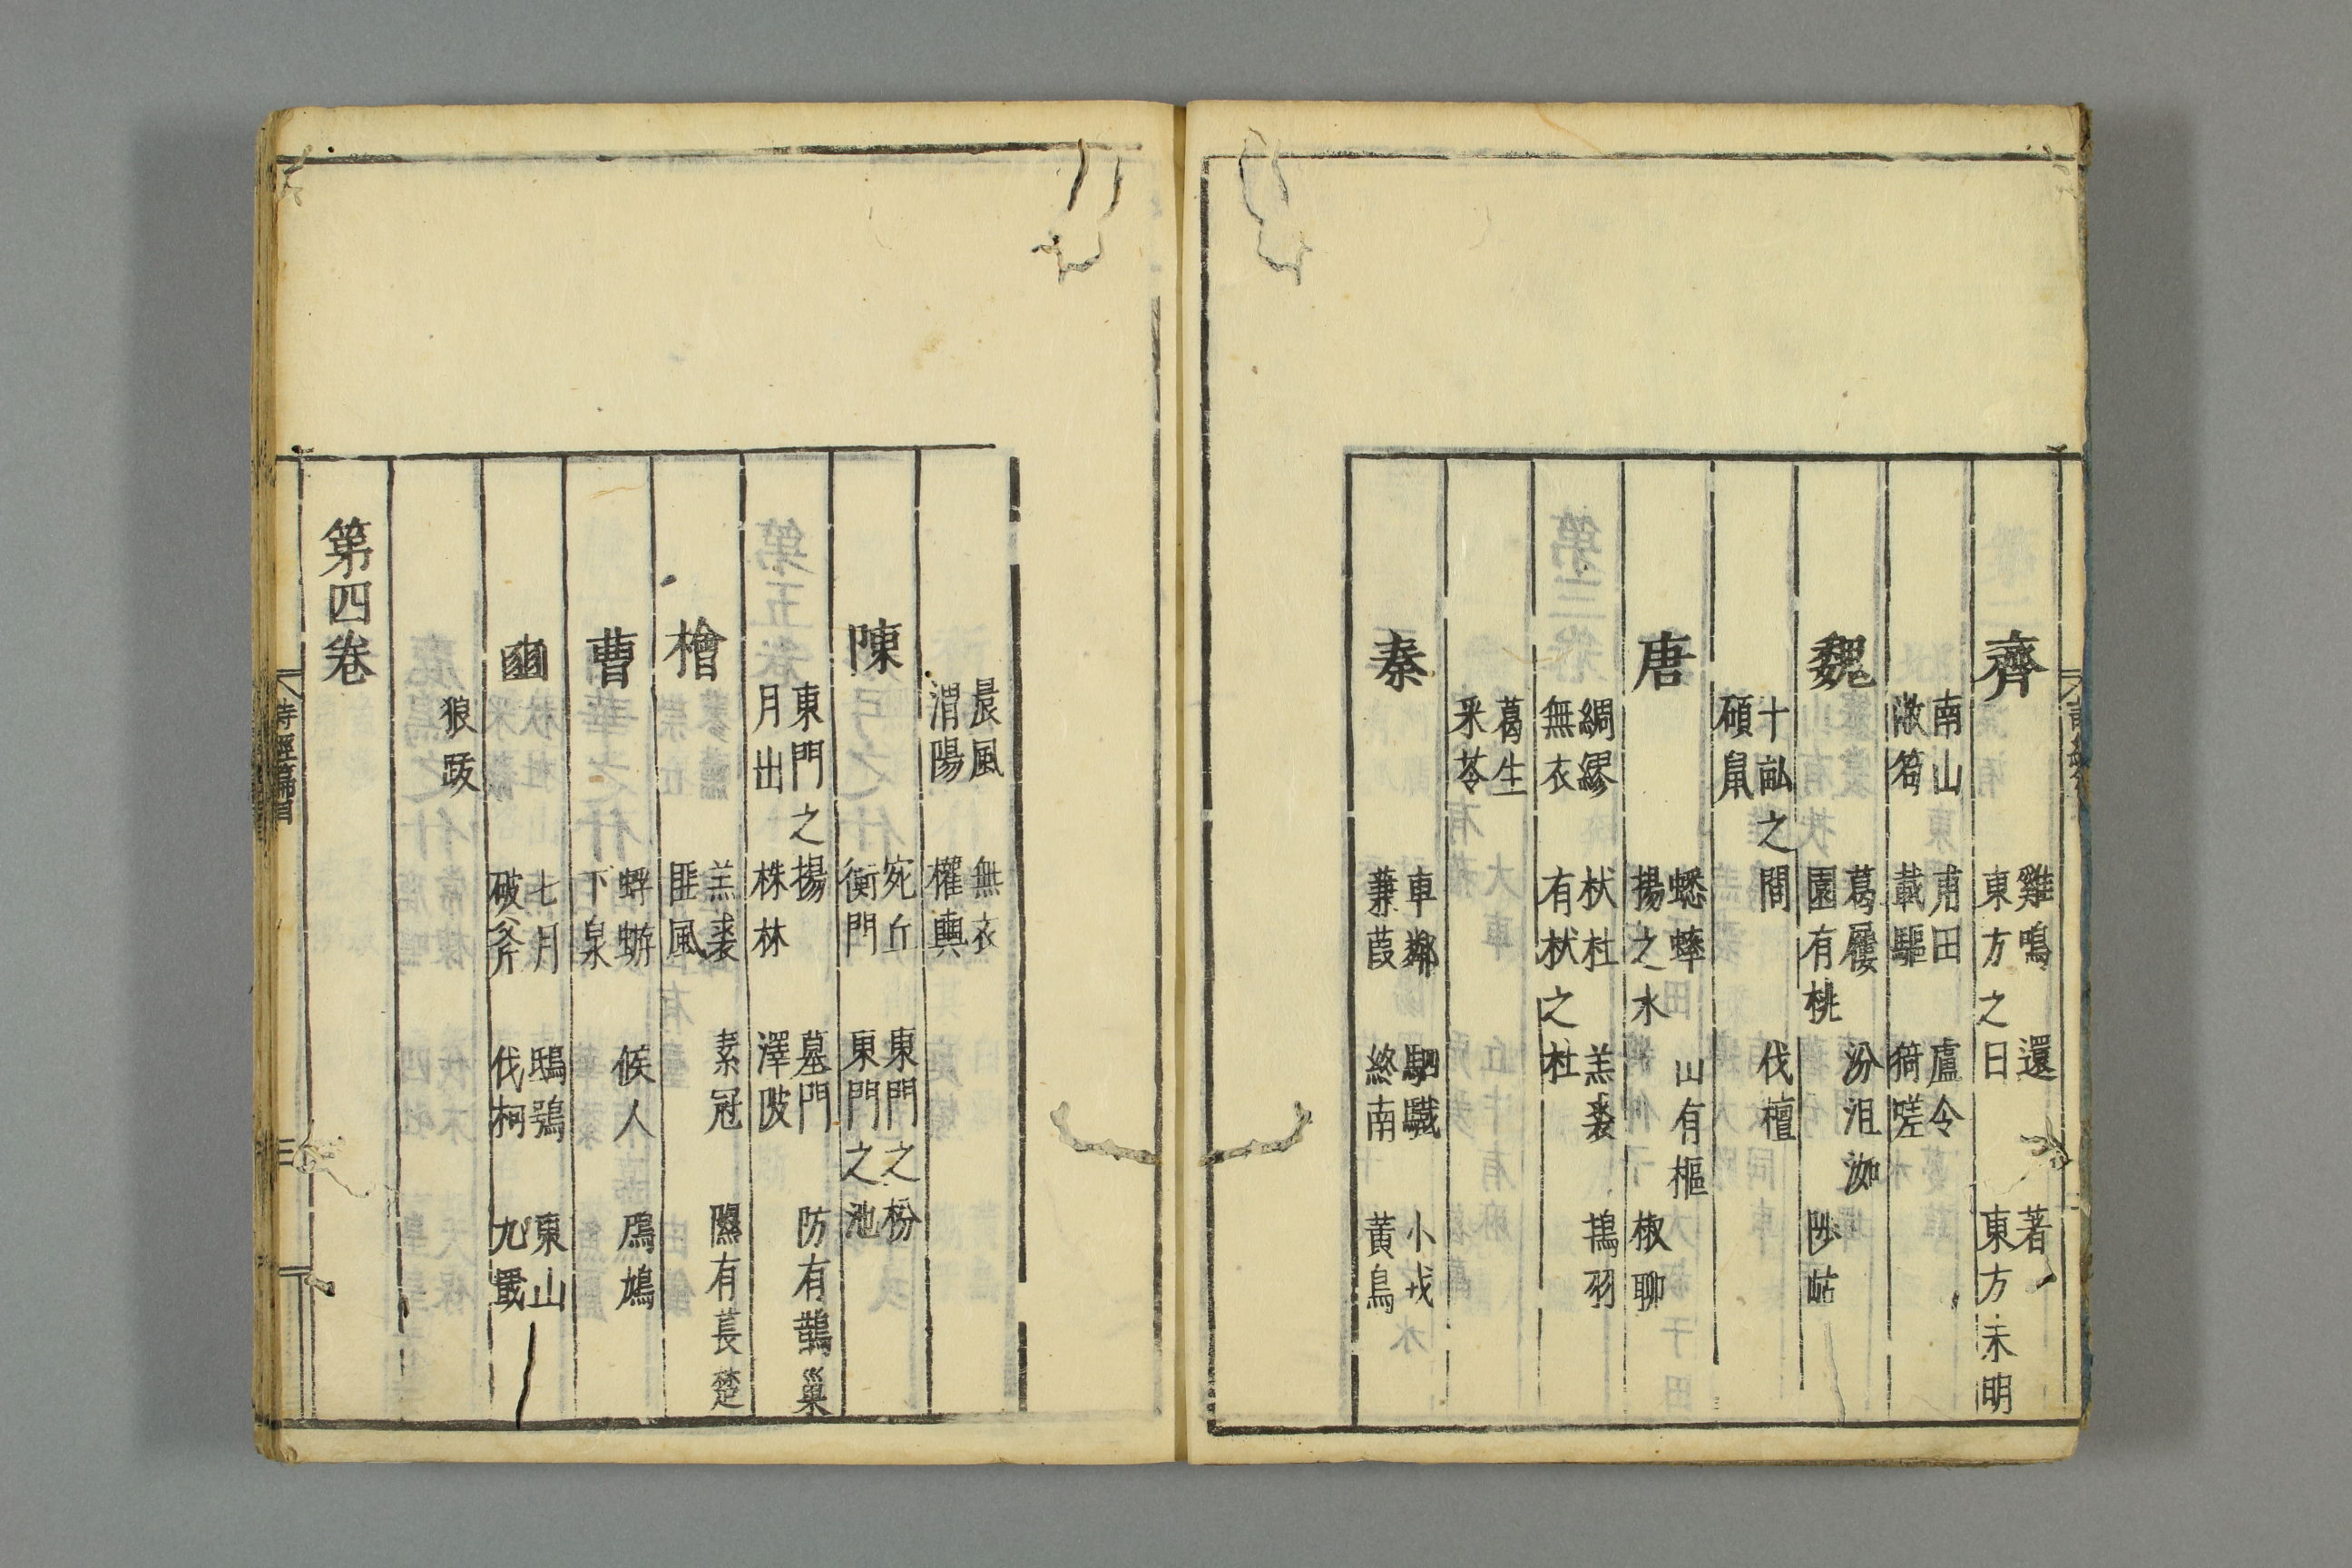 齊
雞鳴　還　著
東方之日　東方未明
南山　甫田　盧令
敝笱　載驅　猗嗟
魏
葛屨　汾沮洳
園有桃　陟岵
十畆之間　伐檀
碩鼠
唐
蟋蟀　山有樞
揚之水　椒聊
綢繆　杕杜　羔裘　鴇羽
無衣　有杕之杜
葛生
采苓
秦
車鄰　駟驖　小戎
蒹葭　終南　黃鳥
晨風　無衣
渭陽　權輿
陳
宛丘　東門之枌
衡門　東門之池
東門之揚　墓門　防有鵲巢
月出　株林　澤陂
檜
羔裘　素冠　隰有萇楚
匪風
曹
蜉蝣　候人　鳲鳩
下泉
豳
七月　鴟鴞　東山
破斧　伐柯　九罭
狼跋
第四卷
詩經篇目　三